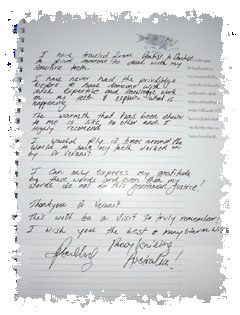 I have traveled from Dentist to Dentist
to find someone to deal with my
sensitive teeth
I have never had the priviledge
before to have someone with
such expertise & knowledge work
on my teeth & explain what is
happening
The warmth that has been shown
to me is like no other and I
Highly recomend
I would fly 17 hours around the
world to have my teeth worked
by Dr Verma!!
I can only express my gratitude
by these words and even than my
words do not do this gentleman justice!
Thankyou Dr Verma!!
This will be a visit to truly remember!
I wish you the best &
Australia!